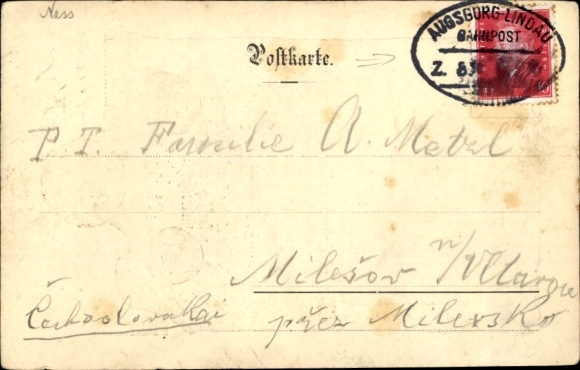 Ness
Postkarte.
AUGSBURG-LINDAU
BAHNPOST
Z.
P. T. Familie A. Metzl
Milešov n/Vltavou
Čechoslovakei
přez Milevsko